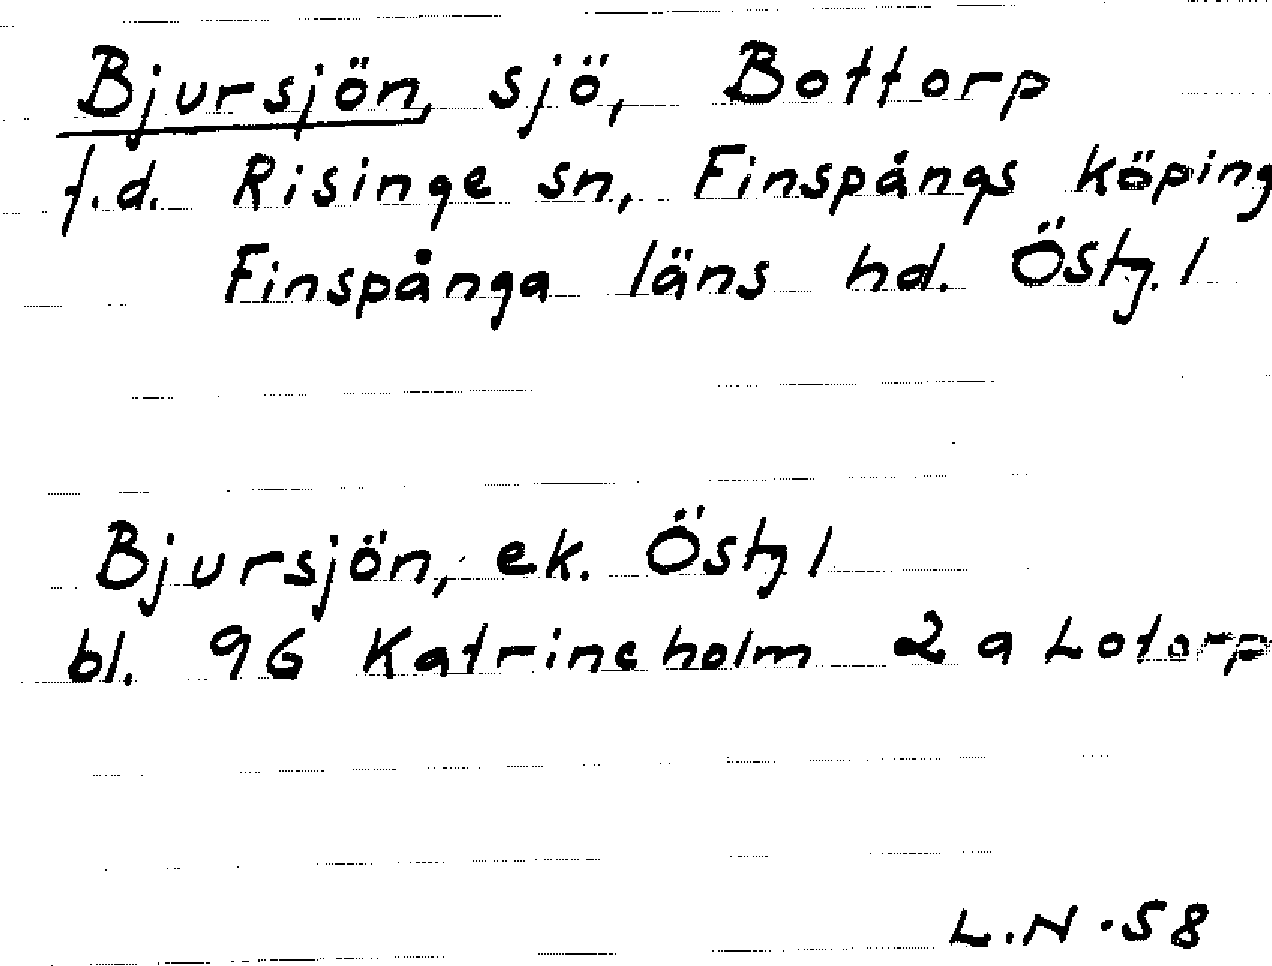 Bjursjön, sjö, Bottorp
f.d. Risinge sn, Finspångs köping
Finspånga läns hd. Östg. l
Bjursjön, ek. Östg l
bl. 96 Katrineholm 2 a Lotorp
L.N. 58